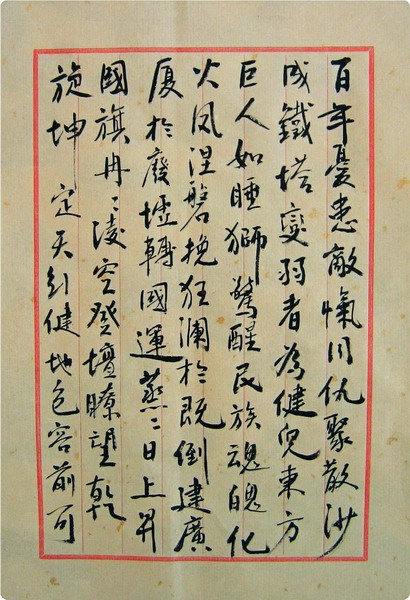 百年憂患敵愾同仇聚散沙
成鐵塔變弱者為健兒東方
巨人如睡獅驚醒民族魂魄化
火凤涅磐挽狂瀾於既倒建廣
厦於廢墟轉國運蒸々日上昇
國旗冉々凌空登壇瞭望乾
旋坤 定天行健地包容前可